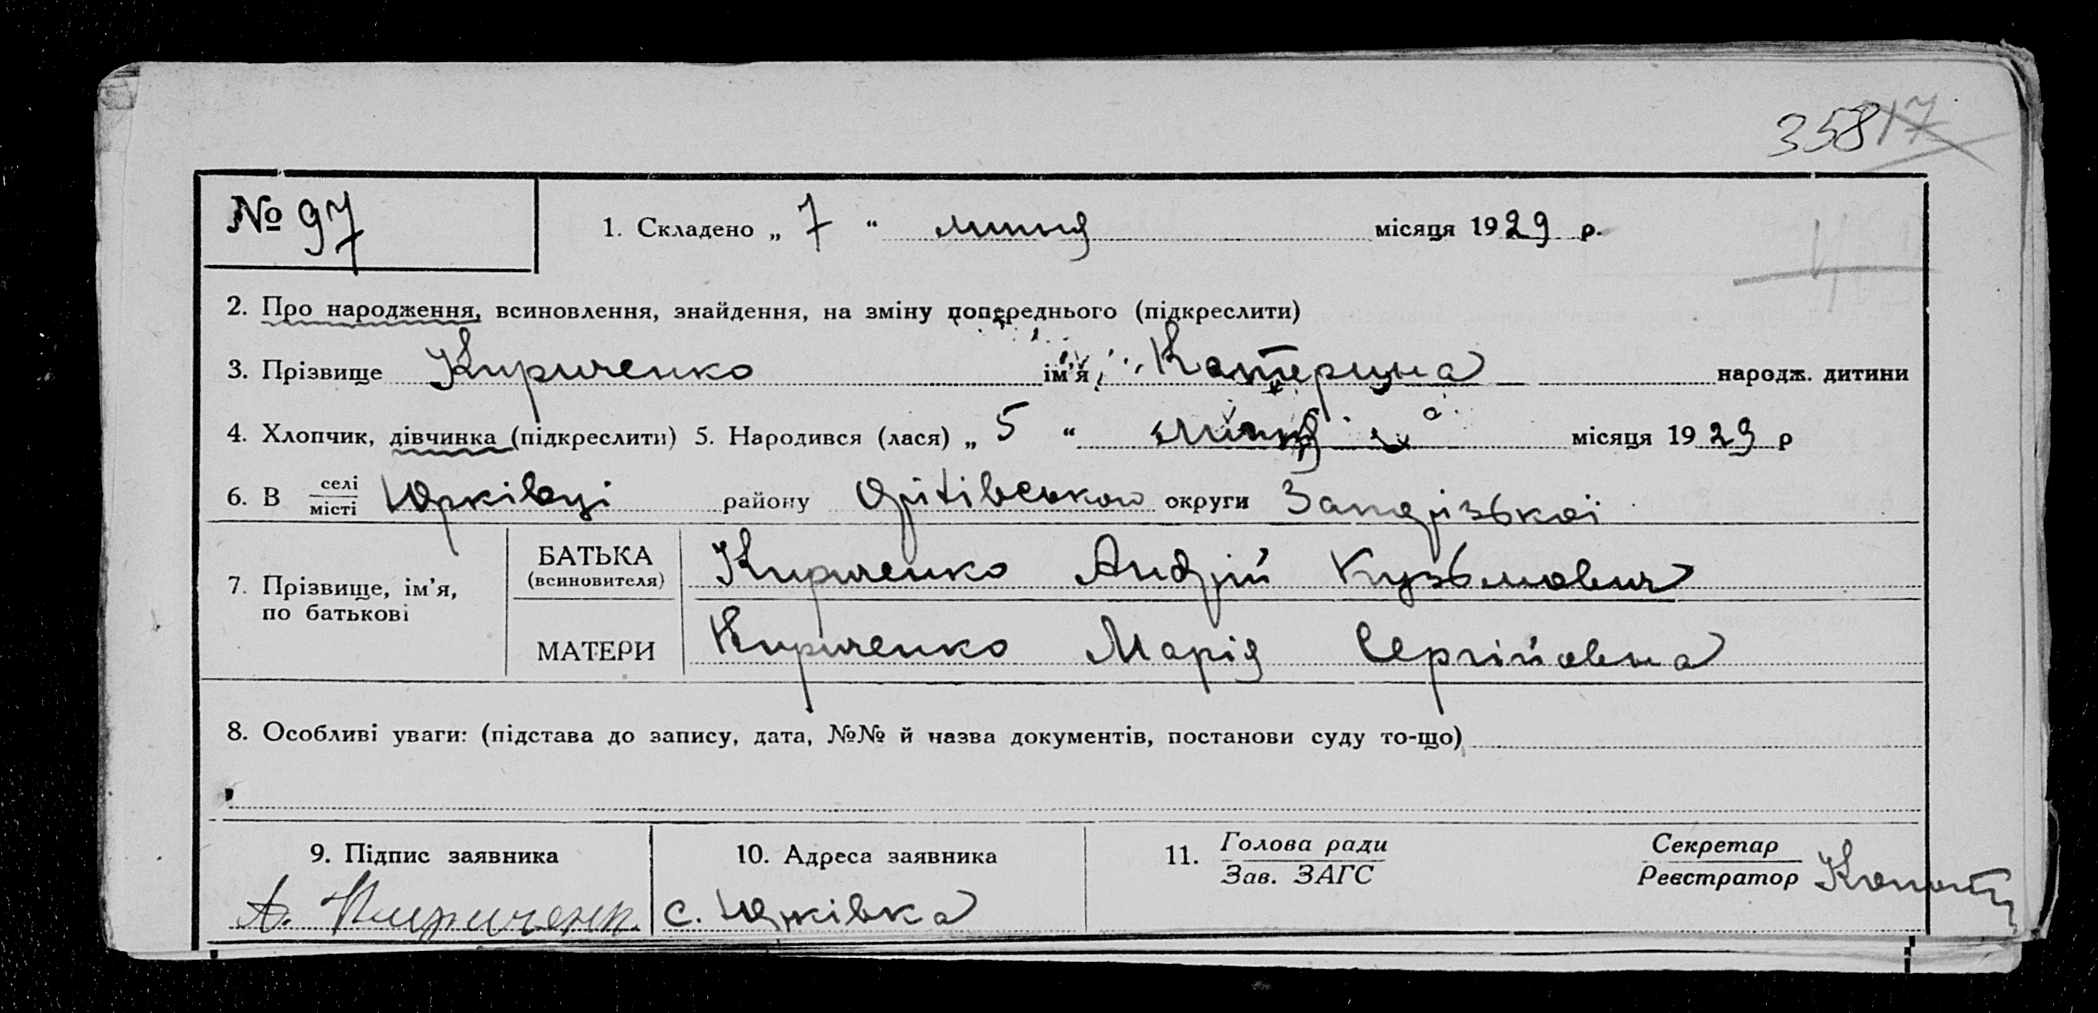 358 17
№ 97
1. Складено „ 7 “ липня місяця 1929 р.
2. Про народження, всиновлення, знайдення, на зміну попереднього (підкреслити)
3. Прізвище Кириченко ім'я Катерина народж. дитини
4. Хлопчик, дівчинка (підкреслити) 5. Народився (лася) „ 5 “ липня місяця 1929 р
6. В селі місті Юрківці району Оріхівського округи Запорізької
7. Прізвище, ім'я, по батькові
БАТЬКА (всиновителя) Кириченко Андрій Кузьмович
МАТЕРИ Кириченко Марія Сергійовна
8. Особливі уваги: (підстава до запису, дата, №№ й назва документів, постанови суду то-що)
9. Підпис заявника
А. Кириченк.
10. Адреса заявника
с. Юрківка
11. Голова ради
Зав. ЗАГС
Секретар
Реєстратор